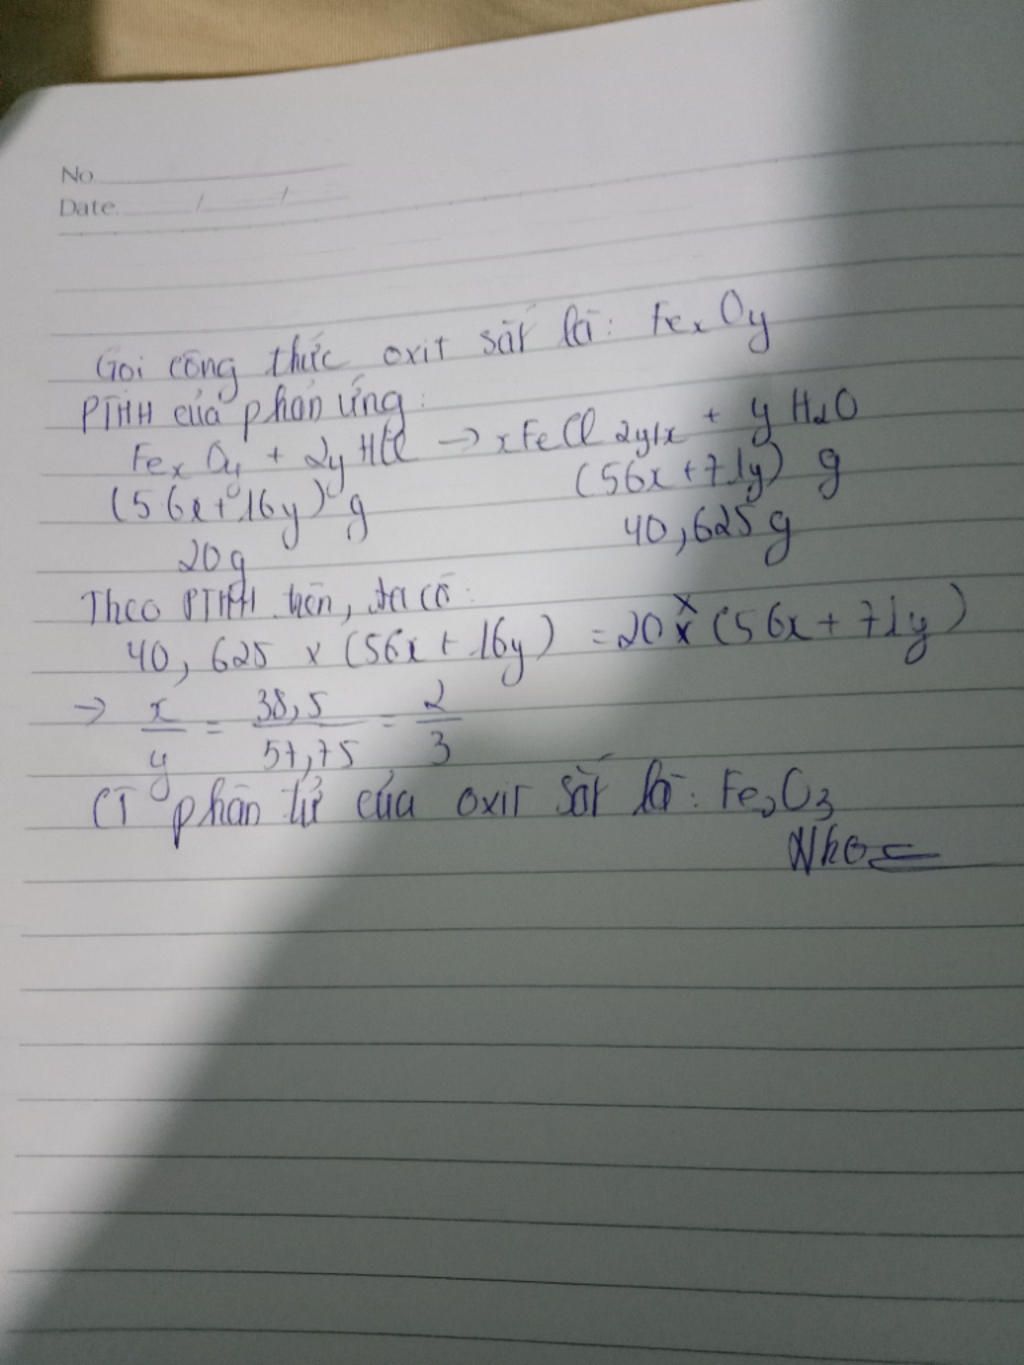 No.
Date. / /
Gọi công thức oxit sắt là: FexOy
PTHH của phản ứng:
FexOy + 2yHCl → xFeCl2y/x + yH2O
(56x+16y) g (56x+71y) g
20g 40,625g
Theo PTHH trên, ta có:
40,625 x (56x + 16y) = 20 x (56x + 71y)
→ x/y = 38,5/57,75 = 2/3
CT phân tử của oxit sắt là: Fe2O3